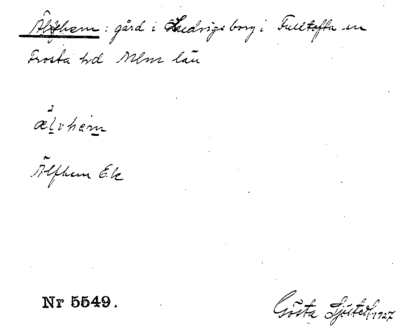 Älfhem: gård i Ludvigsborg i Fulltofta sn
Frosta hd Mlm län
älvhem
Älfhem Ek
Nr 5549.
Gösta Sjöstedt 1927